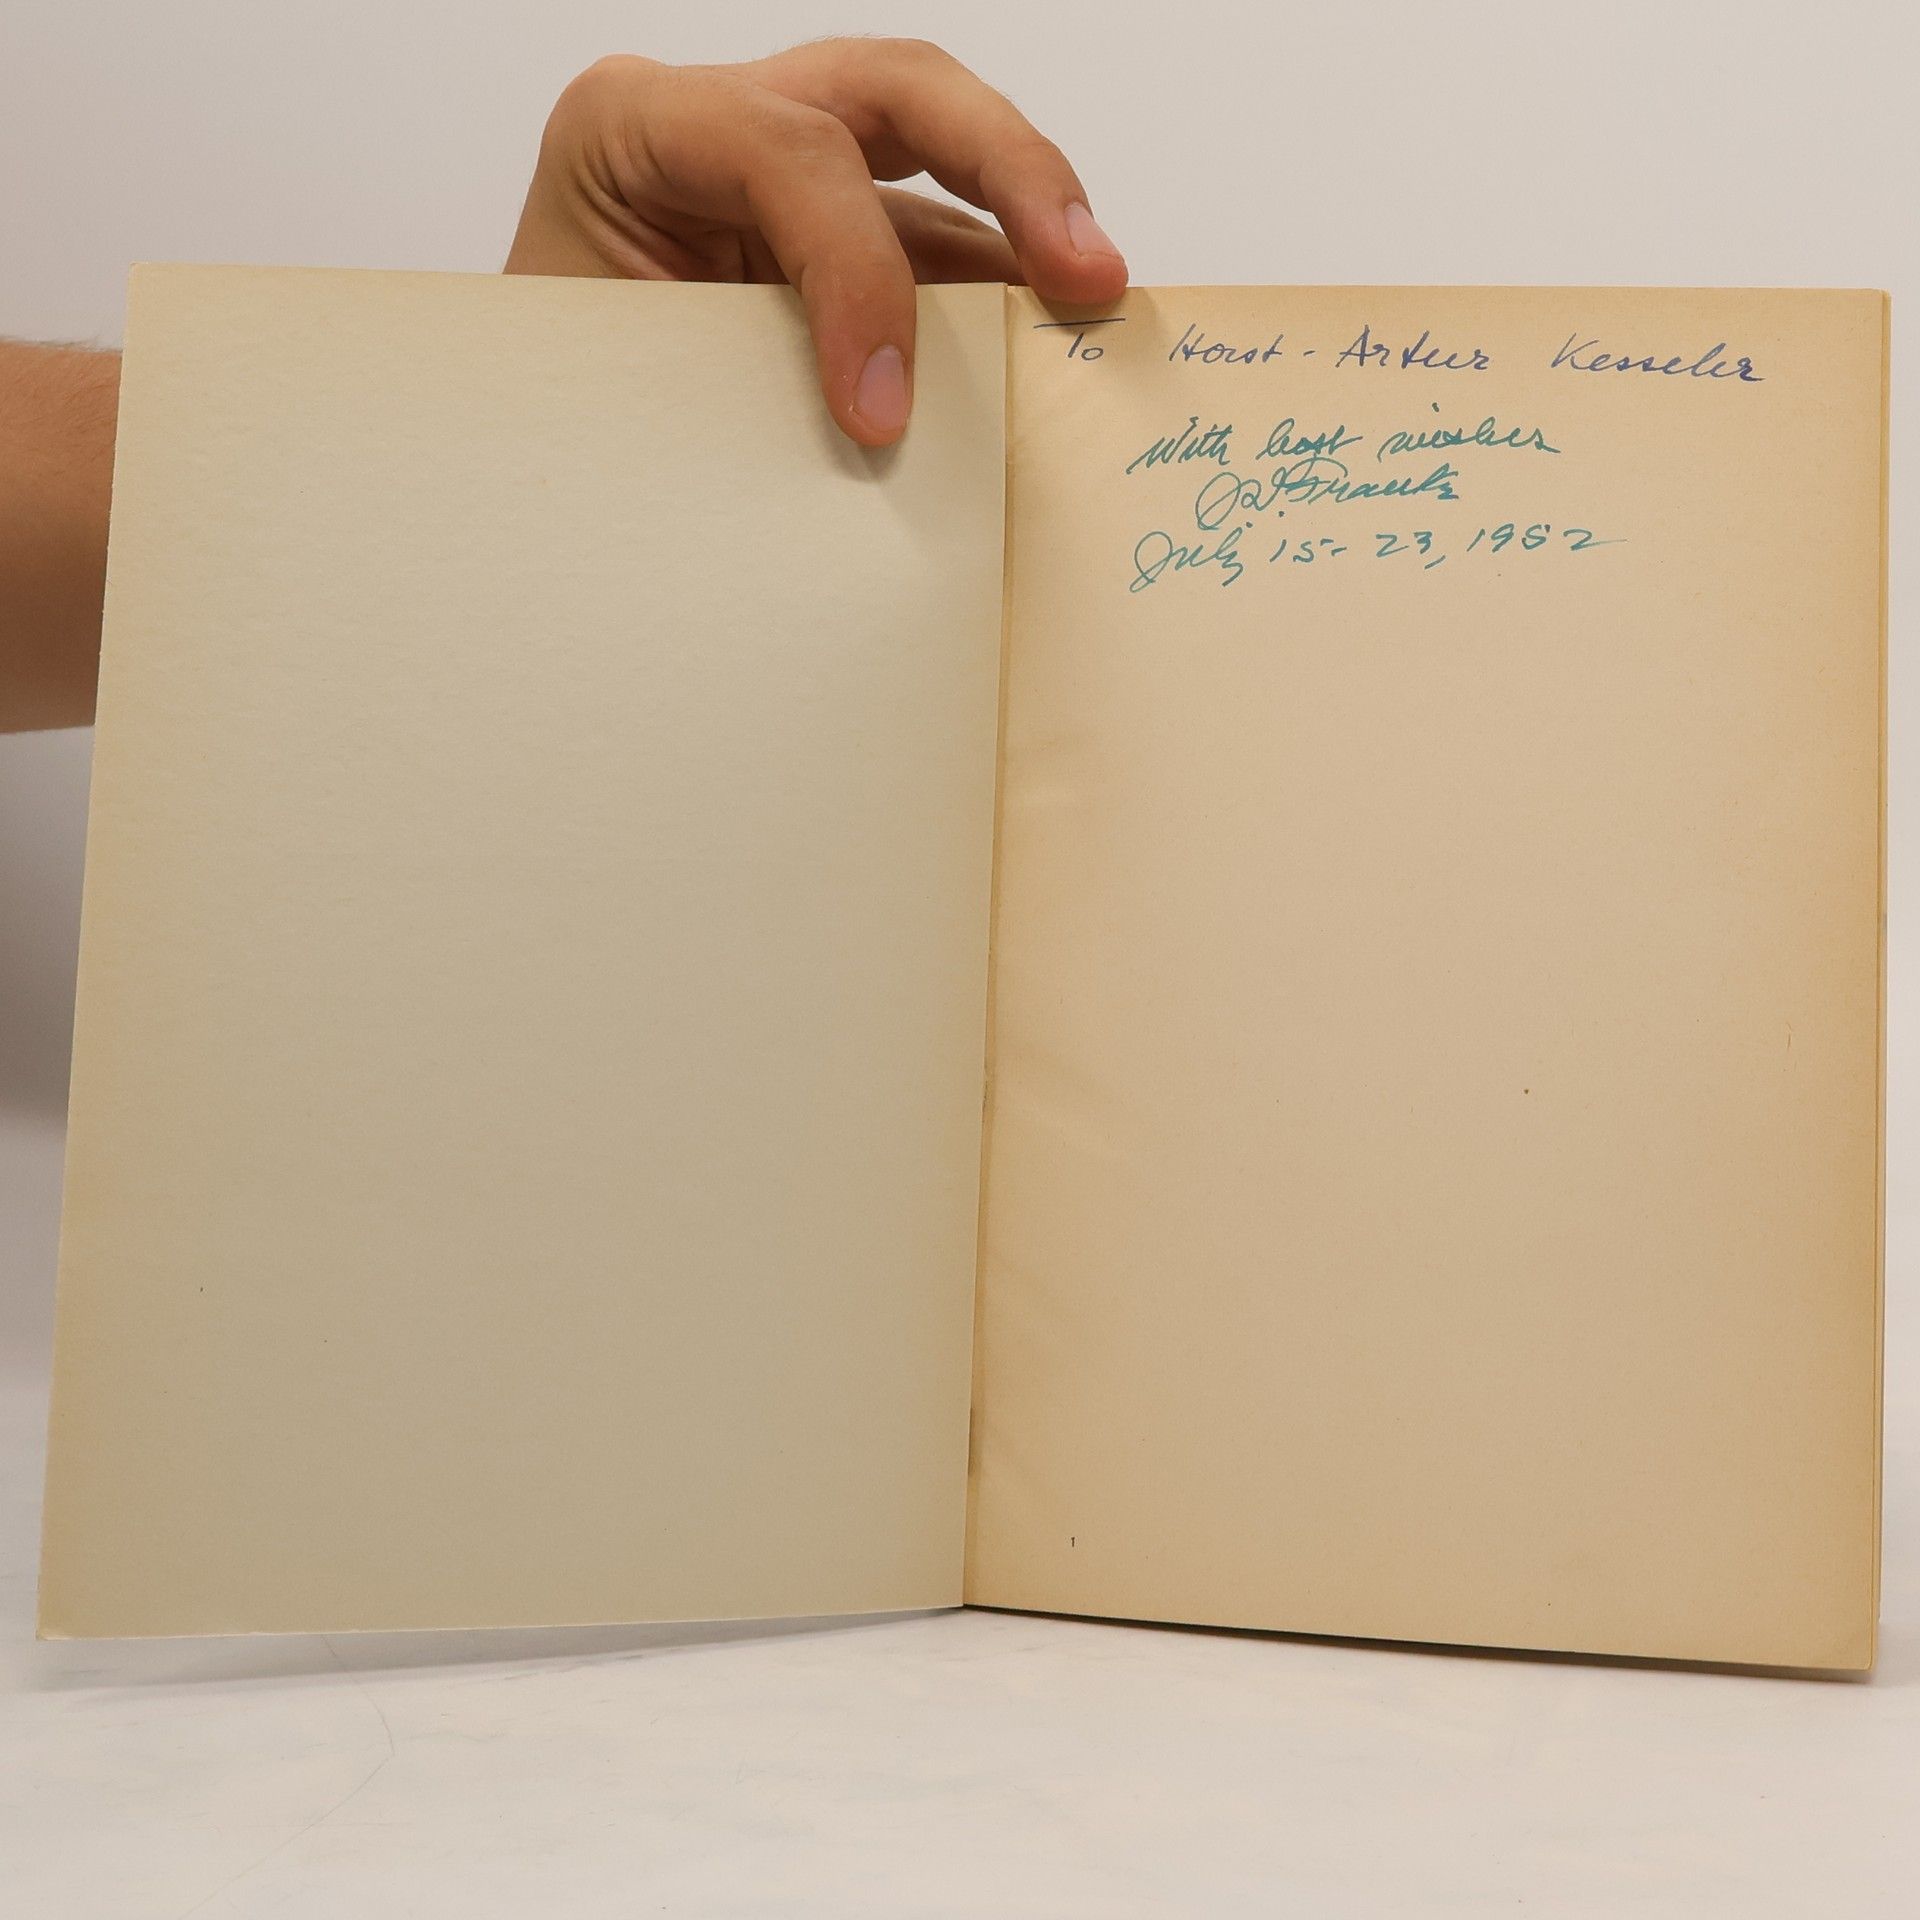 To Horst-Artur Kesseler
With best wishes
Frantz
July 15-23, 1952
1